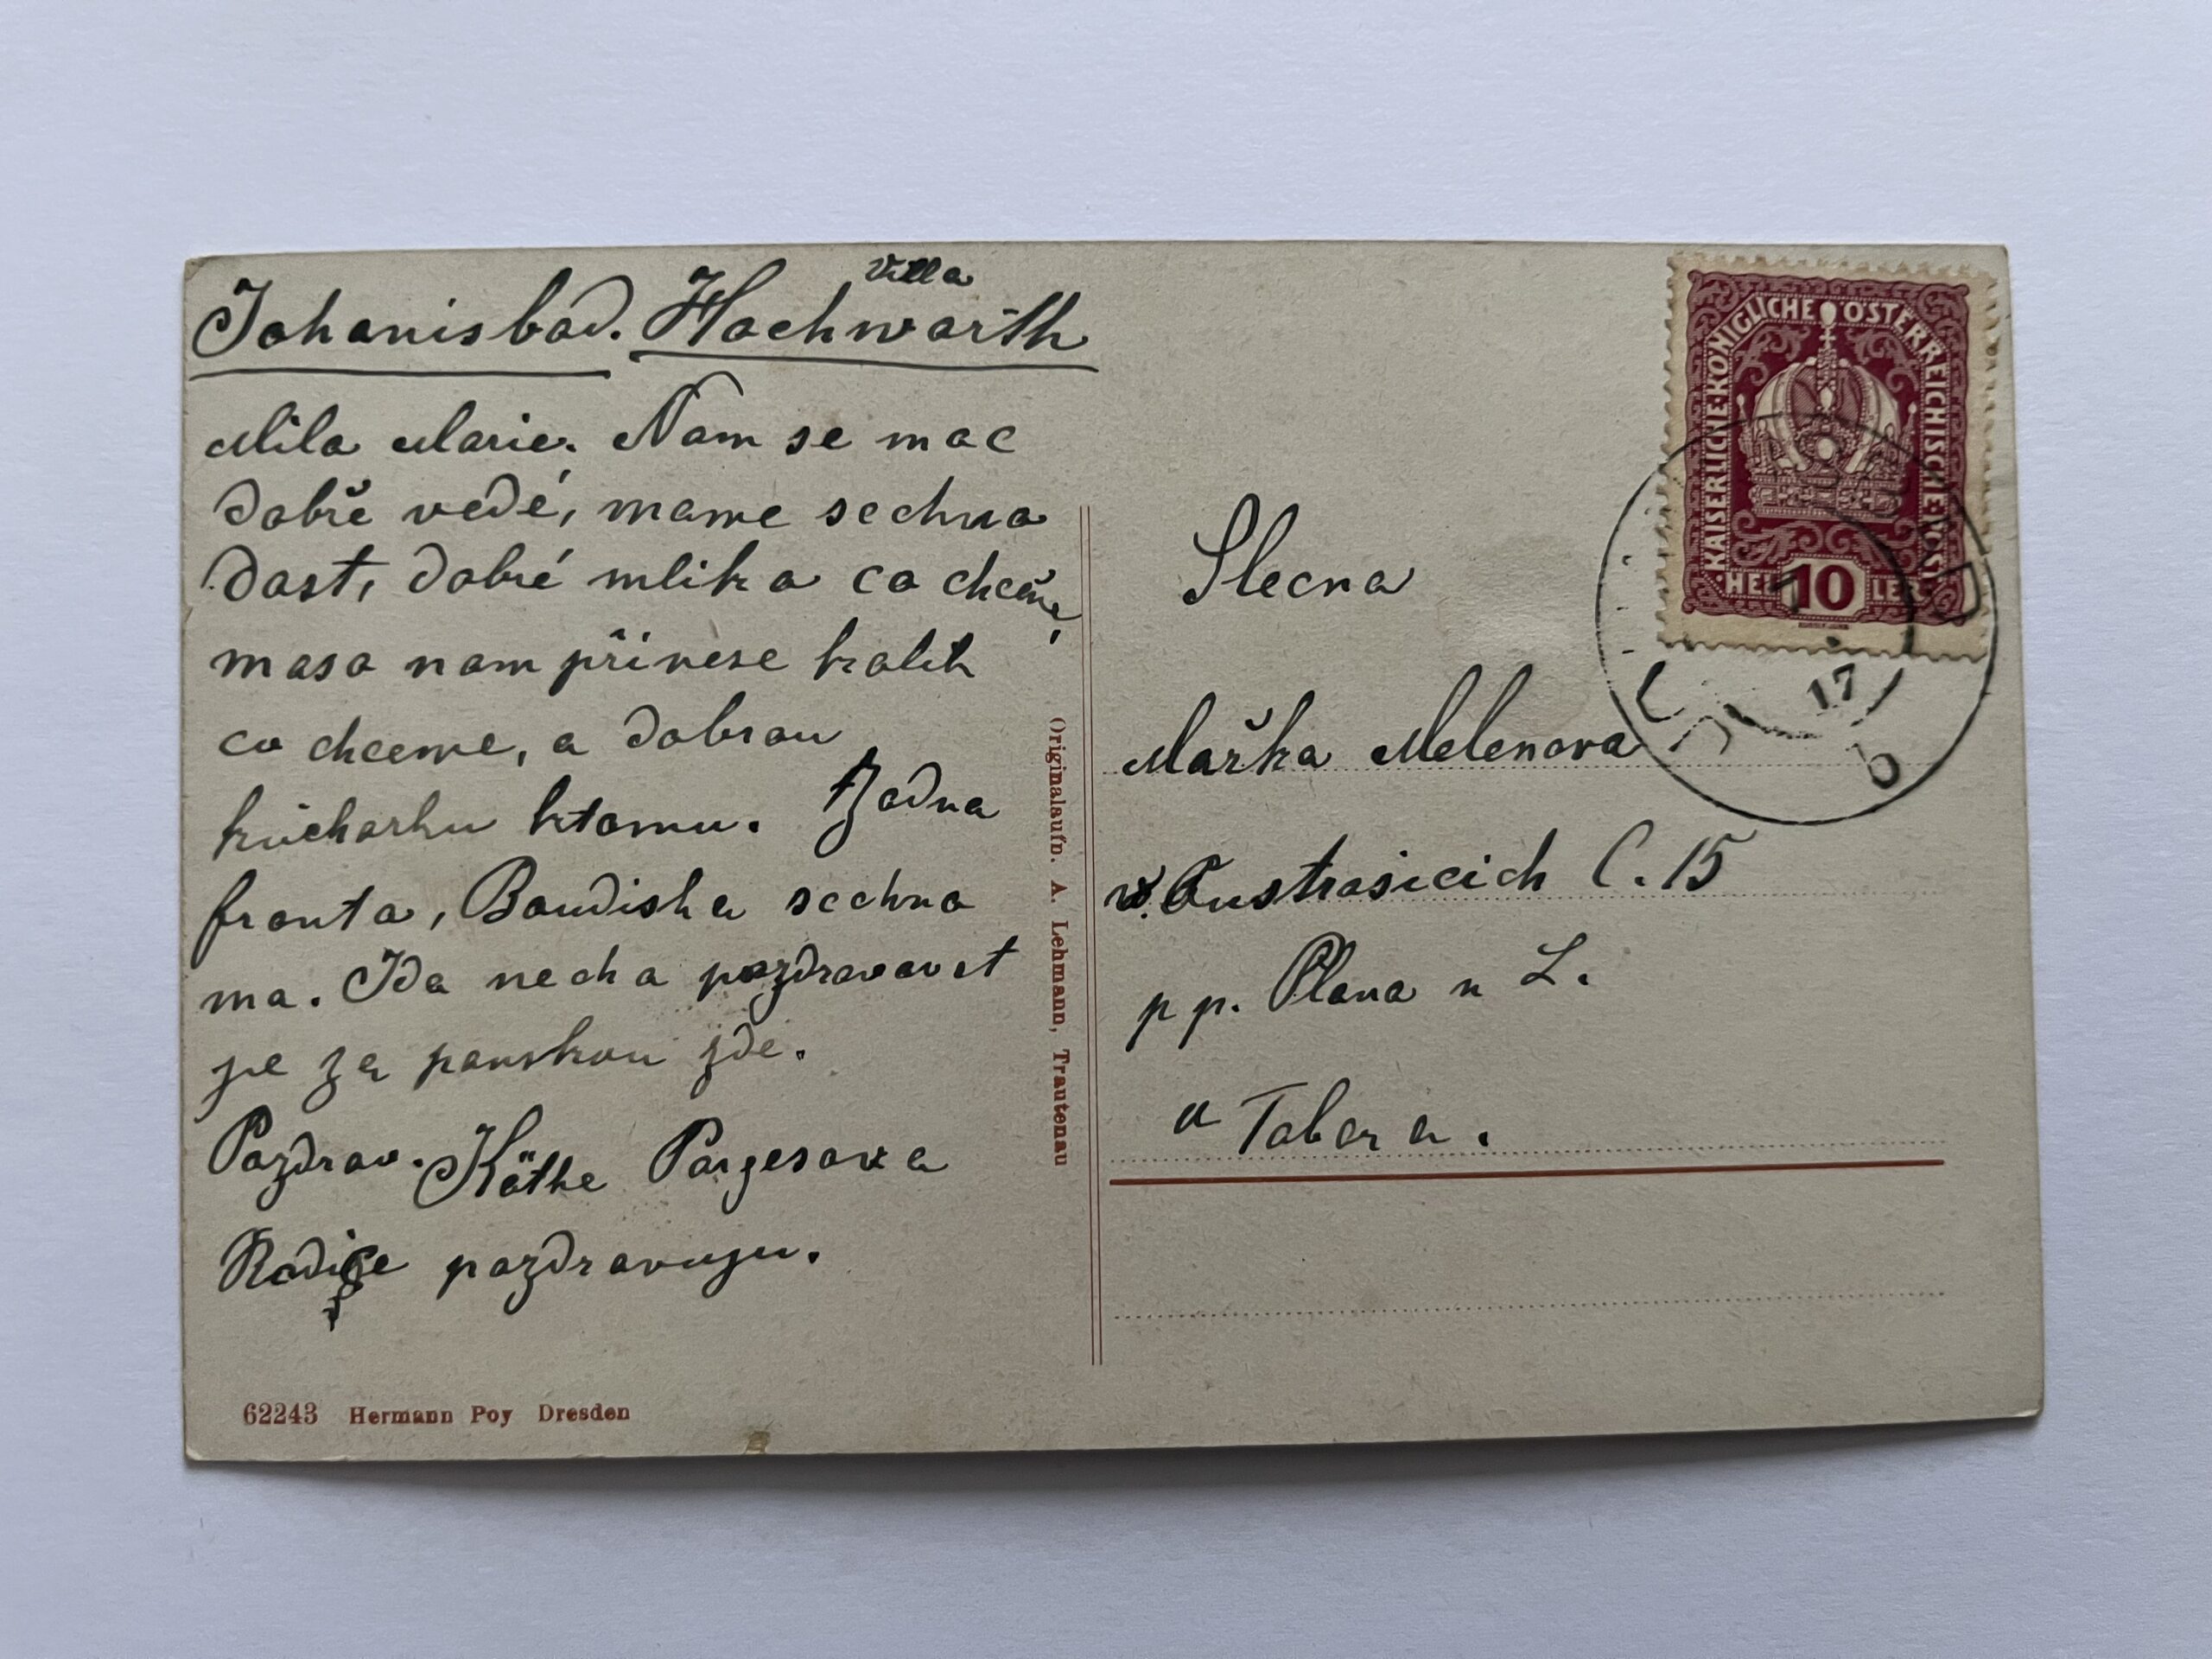 Johanisbad. Villa Hochwarth
Mila Marie. Nam se mac
dobře vedé, mame sechno
dost, dobré mlika co chceme,
maso nam přinese kolik
co chceme, a dobrou
kuchařku ktomu. Žadna
fronta, Baudishu sechno
ma. Ida necha pozdravovat
je za panskou zde.
Pozdrav. Käthe Porgesova
Rodiče pozdravuju.
62243 Hermann Poy Dresden
Originalaufn. A. Lehmann, Trautenau
KAISERLICHE KÖNIGLICHE ÖSTERREICHISCHE POST
HELLER 10
17
b
Slecna
Mařka Melenova
v. Oustrašicich C. 15
p p. Plana n L.
u Tabora.